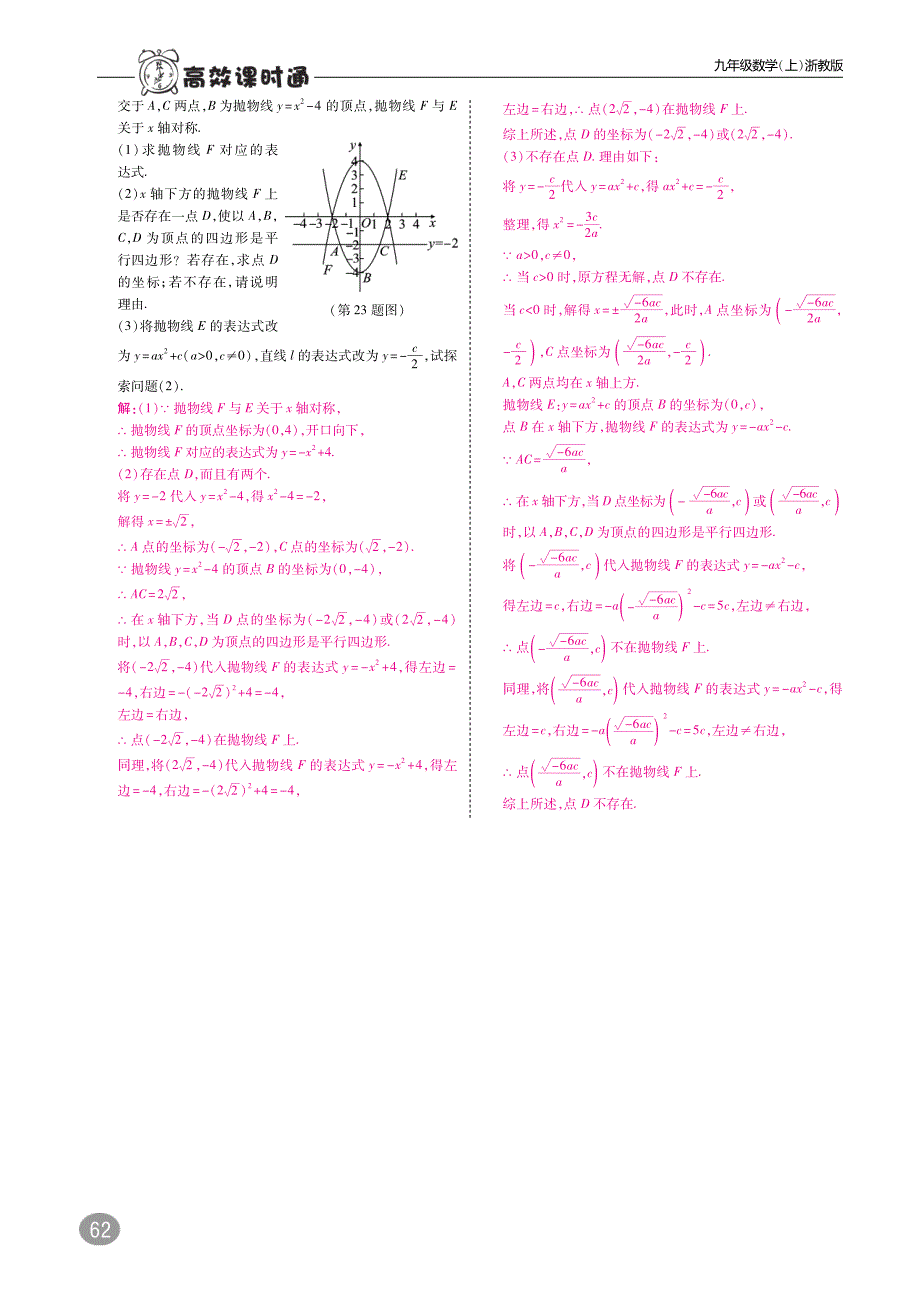 高效课时通
九年级数学(上)浙教版
交于 A,C 两点,B 为抛物线 y=x²-4 的顶点,抛物线 F 与 E
关于 x 轴对称.
(1)求抛物线 F 对应的表
达式.
(2)x 轴下方的抛物线 F 上
是否存在一点 D,使以 A,B,
C,D 为顶点的四边形是平
行四边形？若存在,求点 D
的坐标;若不存在,请说明
理由.
(3)将抛物线 E 的表达式改
y
4
3
2
1
E
-4 -3 -2 -1 O 1 2 3 4 x
-1
-2
-3
-4
A
C
y=-2
F
B
(第 23 题图)
为 y=ax²+c(a>0,c≠0),直线 l 的表达式改为 y=-c/2,试探
索问题(2).
解:(1)∵ 抛物线 F 与 E 关于 x 轴对称,
∴ 抛物线 F 的顶点坐标为(0,4),开口向下,
∴ 抛物线 F 对应的表达式为 y=-x²+4.
(2)存在点 D,而且有两个.
将 y=-2 代入 y=x²-4,得 x²-4=-2,
解得 x=±√2,
∴ A 点的坐标为(-√2,-2),C 点的坐标为(√2,-2).
∵ 抛物线 y=x²-4 的顶点 B 的坐标为(0,-4),
∴ AC=2√2,
∴ 在 x 轴下方,当 D 点的坐标为(-2√2,-4)或(2√2,-4)
时,以 A,B,C,D 为顶点的四边形是平行四边形.
将(-2√2,-4)代入抛物线 F 的表达式 y=-x²+4,得左边=
-4,右边=-(-2√2)²+4=-4,
左边=右边,
∴ 点(-2√2,-4)在抛物线 F 上.
同理,将(2√2,-4)代入抛物线 F 的表达式 y=-x²+4,得左
边=-4,右边=-(2√2)²+4=-4,
左边=右边,∴ 点(2√2,-4)在抛物线 F 上.
综上所述,点 D 的坐标为(-2√2,-4)或(2√2,-4).
(3)不存在点 D. 理由如下:
将 y=-c/2 代入 y=ax²+c,得 ax²+c=-c/2,
整理,得 x²=-3c/2a.
∵ a>0,c≠0,
∴ 当 c>0 时,原方程无解,点 D 不存在.
当 c<0 时,解得 x=±√(-6ac)/2a,此时,A 点坐标为(-√(-6ac)/2a,
-c/2),C 点坐标为(√(-6ac)/2a,-c/2).
A,C 两点均在 x 轴上方.
抛物线 E:y=ax²+c 的顶点 B 的坐标为(0,c),
点 B 在 x 轴下方,抛物线 F 的表达式为 y=-ax²-c.
∵ AC=√(-6ac)/a,
∴ 在 x 轴下方,当 D 点坐标为(-√(-6ac)/a,c)或(√(-6ac)/a,c)
时,以 A,B,C,D 为顶点的四边形是平行四边形.
将(-√(-6ac)/a,c)代入抛物线 F 的表达式 y=-ax²-c,
得左边=c,右边=-a(-√(-6ac)/a)²-c=5c,左边≠右边,
∴ 点(-√(-6ac)/a,c)不在抛物线 F 上.
同理,将(√(-6ac)/a,c)代入抛物线 F 的表达式 y=-ax²-c,得
左边=c,右边=-a(√(-6ac)/a)²-c=5c,左边≠右边,
∴ 点(√(-6ac)/a,c)不在抛物线 F 上.
综上所述,点 D 不存在.
62